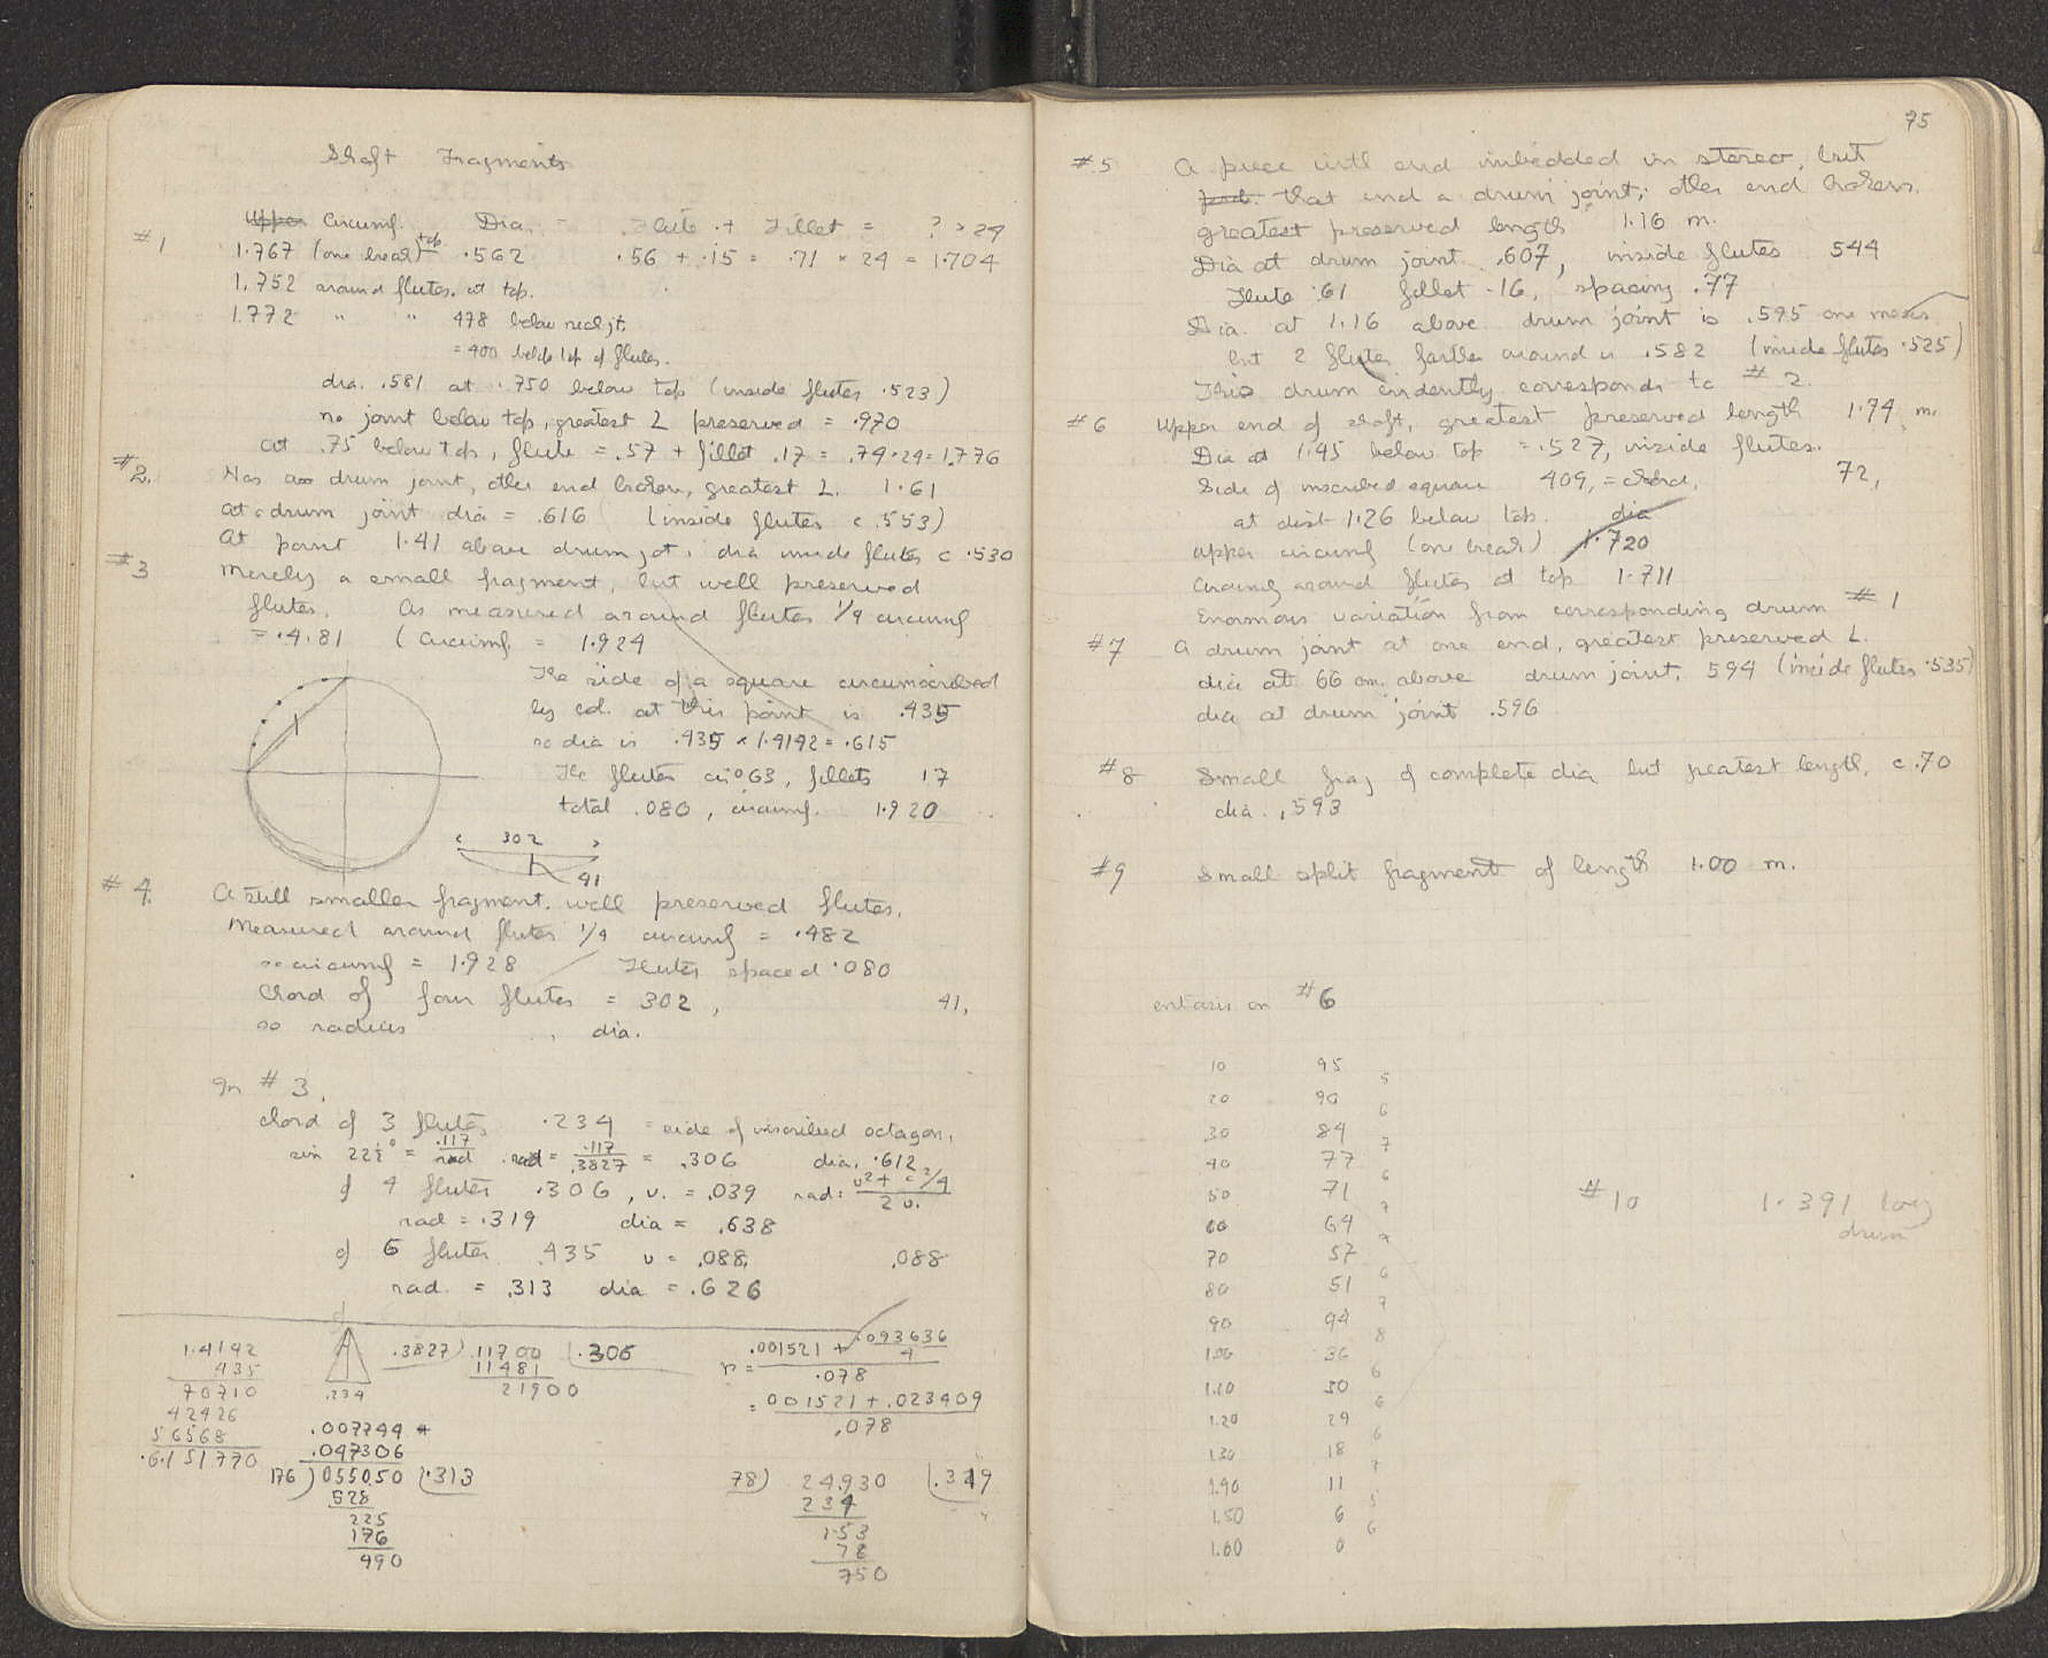 Shaft Fragments
#1 Upper Circumf. Dia. = Flute + Fillet = ? × 24
1.767 (one break) top .562 .56 + .15 = .71 × 24 = 1.704
1.752 around flutes. at top.
1.772 " " 478 below neck jt.
= 400 below top of flutes.
dia. .581 at .750 below top (inside flutes .523)
no joint below top, greatest L preserved = .970
at .75 below top, flute = .57 + fillet .17 = .74 × 24 = 1.776
#2. Has a drum joint, other end broken, greatest L. 1.61
at drum joint dia = .616 (inside flutes c .553)
At point 1.41 above drum jt. dia inside flutes c .530
#3 Merely a small fragment, but well preserved
flutes. As measured around flutes 1/4 circumf
= .481 (circumf. = 1.924
The side of a square circumscribed
by col. at this point is .435
so dia is .435 × 1.4142 = .615
The flutes are 63, fillets 17
total .080, circumf. 1.920
302
41
#4. A still smaller fragment. well preserved flutes.
Measured around flutes 1/4 circumf = .482
so circumf = 1.928 Flutes spaced .080
Chord of four flutes = 302, 41,
so radius , dia.
In #3,
chord of 3 flutes .234 = side of inscribed octagon.
sin 22½° = .117/rad rad = .117/.3827 = .306 dia. .612
of 4 flutes .306, v. = .039 rad = v² + c²/4 / 2v.
rad = .319 dia = .638
of 6 flutes .435 v = .088. .088
rad. = .313 dia = .626
1.4142
435
70710
42426
56568
.6151770
.234
.3827 ) .11700 ( .306
11481
21900
.007744 +
.047306
176 ) 055050 ( .313
528
225
176
490
r = .001521 + .093636/4
.078
= 001521 + .023409
.078
78) 24.930 ( .319
234
153
78
750
75
#5 A piece with end imbedded in stereo, but
prob. that end a drum joint; other end broken.
greatest preserved length 1.16 m.
Dia at drum joint .607, inside flutes 544
Flute .61 fillet .16, spacing .77
Dia. at 1.16 above drum joint is .595 one meas
but 2 flutes farther around is .582 (inside flutes .525)
This drum evidently corresponds to #2.
#6 Upper end of shaft, greatest preserved length 1.74 m.
Dia at 1.45 below top = .527, inside flutes.
Side of inscribed square 409, = chord, 72,
at dist 1.26 below top. dia
upper circumf (one break) 1.720
Circumf around flutes at top 1.711
Enormous variation from corresponding drum #1
#7 A drum joint at one end, greatest preserved L.
dia at 66 cm. above drum joint. 594 (inside flutes .535)
dia at drum joint .596
#8 Small frag of complete dia but greatest length, c .70
dia. .593
#9 Small split fragment of length 1.00 m.
entasis on #6
10 95
5
20 90
6
30 84
7
40 77
6
50 71
7
60 64
7
70 57
6
80 51
7
90 44
8
1.00 36
6
1.10 30
6
1.20 24
6
1.30 18
7
1.40 11
5
1.50 6
6
1.60 0
#10 1.391 long
drum